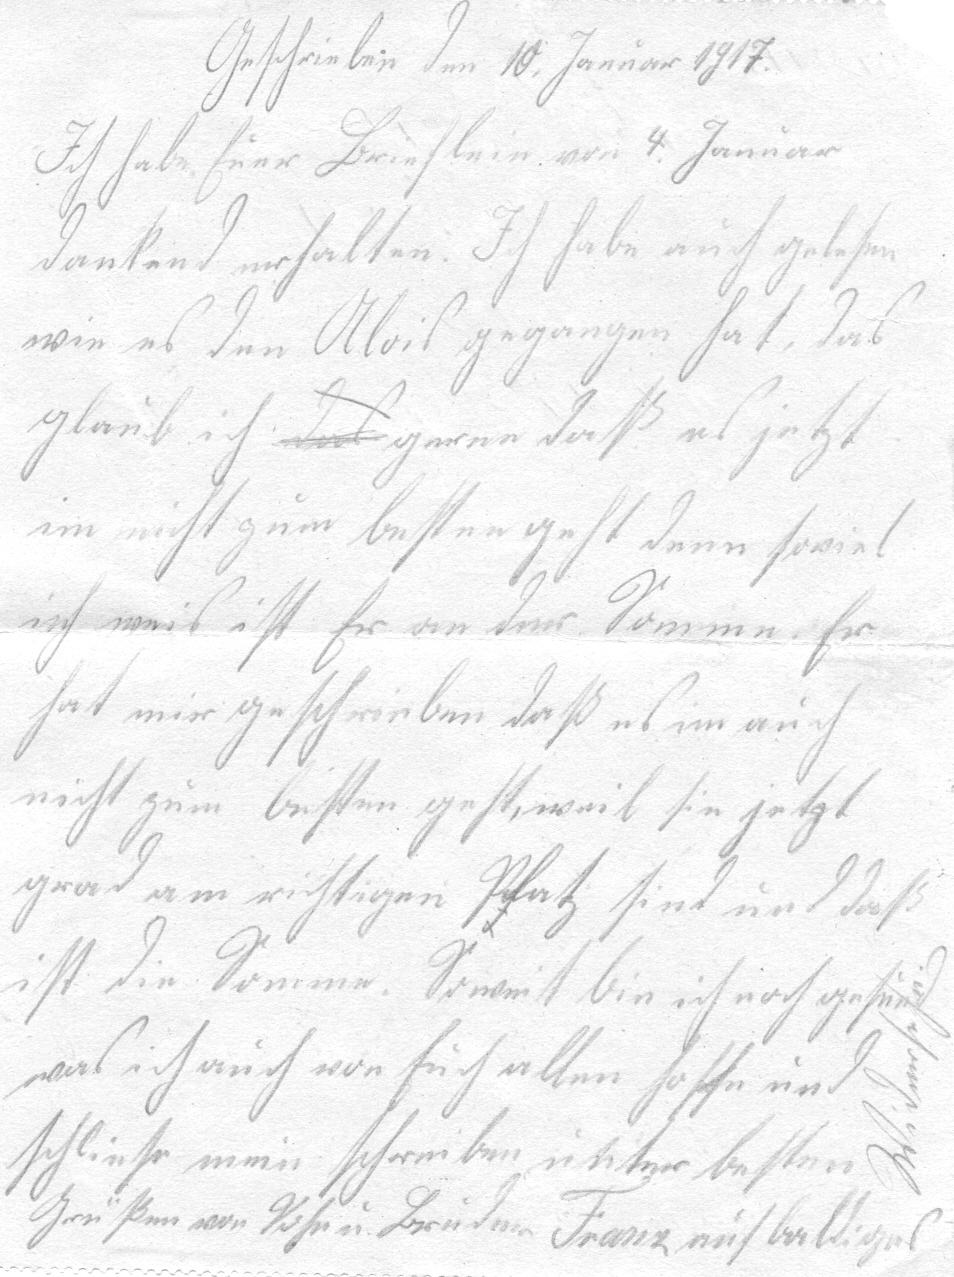 Geschrieben den 10. Januar 1917.
Ich habe Euer Brieflein von 4. Januar
dankend erhalten. Ich habe auch gelesen
wie es den Alois gegangen hat, das
glaub ich das gerne daß es jetzt
im nicht zum besten geht denn soviel
ich weis ist Er an der Somme. Er
hat mir geschrieben daß es im auch
nicht zum besten geht, weil sie jetzt
grad am richtigen Platz sind und daß
ist die Somme. Soweit bin ich noch gesund
was ich auch von Euch allen hoffe und
schließe mein schreiben unter besten
Grüßen von Sohn u. Bruder Franz auf baldiges
Wiedersehn